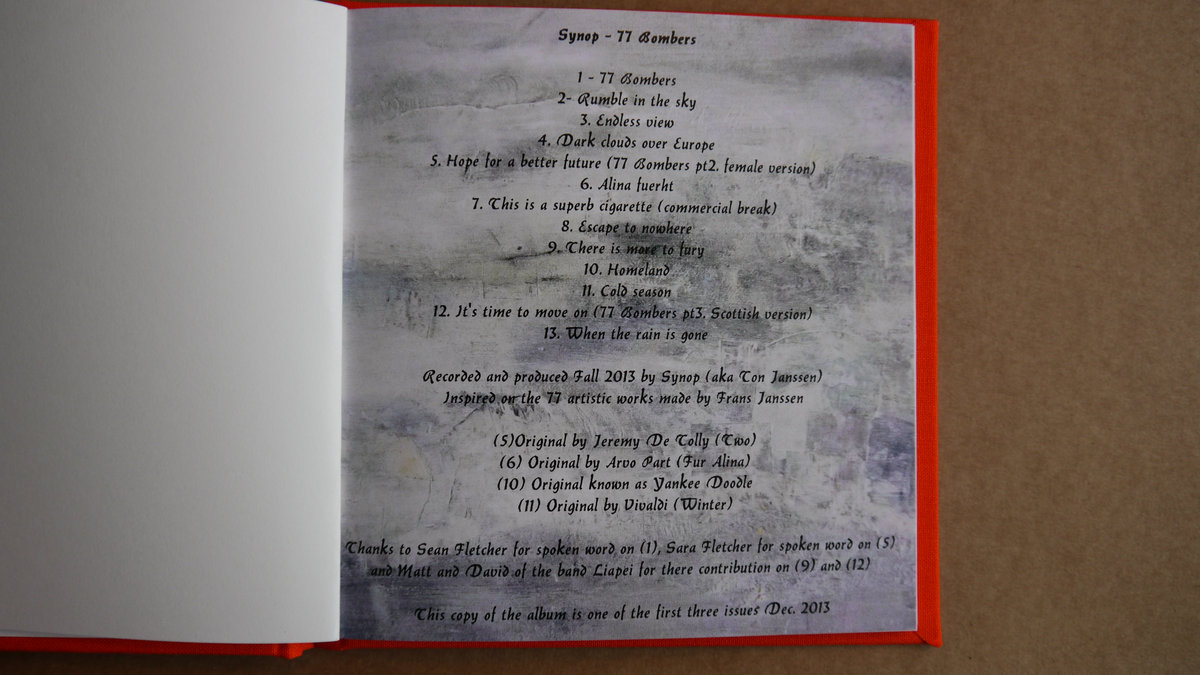 Synop - 77 Bombers
1 - 77 Bombers
2- Rumble in the sky
3. Endless view
4. Dark clouds over Europe
5. Hope for a better future (77 Bombers pt2. female version)
6. Alina fuerht
7. This is a superb cigarette (commercial break)
8. Escape to nowhere
9. There is more to fury
10. Homeland
11. Cold season
12. It's time to move on (77 Bombers pt3. Scottish version)
13. When the rain is gone
Recorded and produced Fall 2013 by Synop (aka Ton Janssen)
Inspired on the 77 artistic works made by Frans Janssen
(5)Original by Jeremy De Tolly (Two)
(6) Original by Arvo Part (Fur Alina)
(10) Original known as Yankee Doodle
(11) Original by Vivaldi (Winter)
Thanks to Sean Fletcher for spoken word on (1), Sara Fletcher for spoken word on (5)
and Matt and David of the band Liapei for there contribution on (9) and (12)
This copy of the album is one of the first three issues Dec. 2013